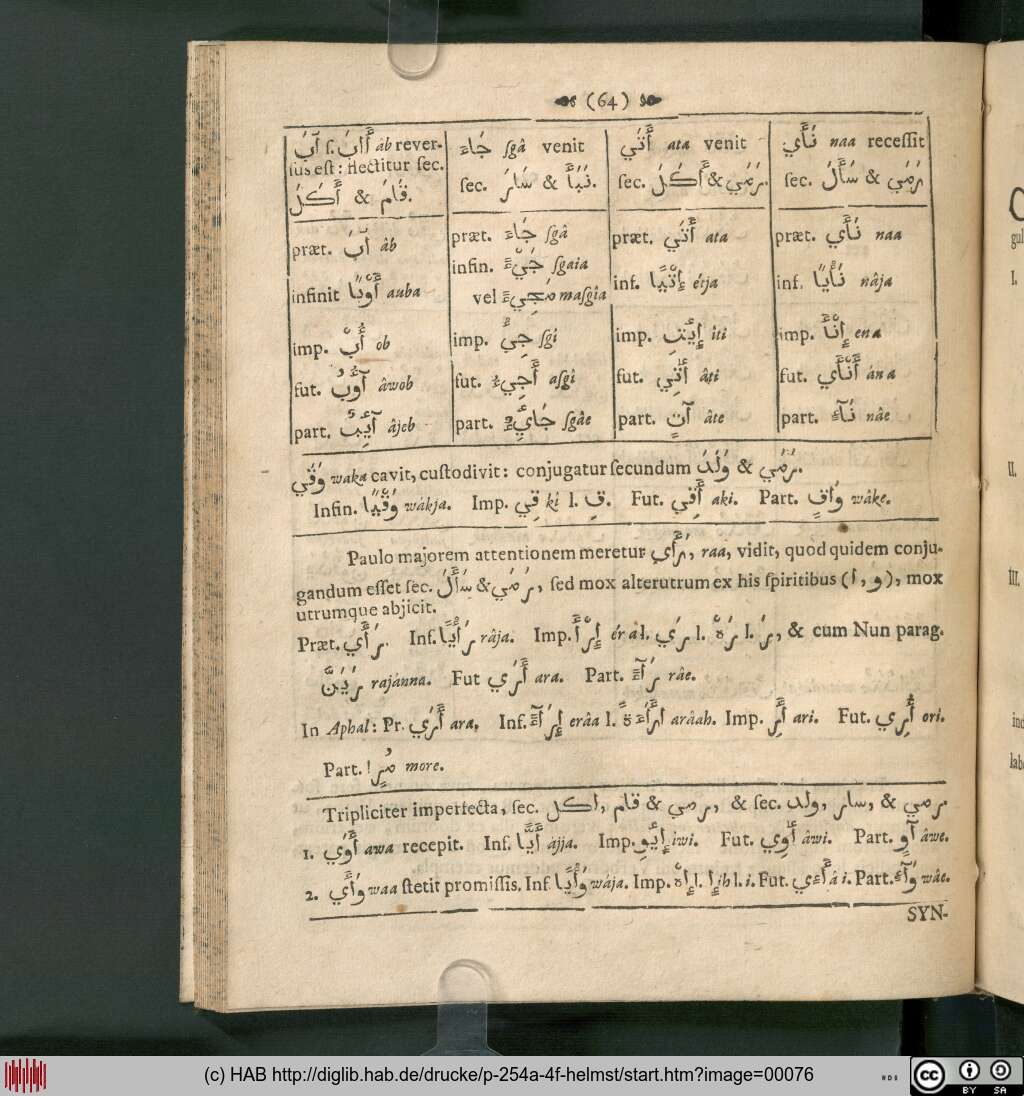 (64)
آبَ ſ. أَابَ âb rever-
ſus eſt: flectitur ſec.
قَامَ & أَكَلَ.
præt. آبَ âb
infinit أَوْبًا auba
imp. أُبْ ob
fut. âwob
part. âjeb
جَاءَ ſgâ venit
ſec. سَارَ & نَبَأَ.
præt. جَاءَ ſgâ
infin. جَيْءً ſgaia
vel مَجِيءً maſgîa
imp. جِيءْ ſgi
fut. أَجِيءُ aſgî
part. ſgâe
أَتَي ata venit
ſec. أَكَلَ & رَمَي.
præt. أَتَي ata
inf. إِتْيًا étja
imp. إِيتِ iti
fut. آتِي âti
part. آتٍ âte
نَأَي naa receſſit
ſec. سَأَلَ & رَمَي
præt. نَأَي naa
inf. نَأْيًا nâja
imp. إِنْأَ ena
fut. أَنْأَي ána
part. نَآءٍ nâe
وَقَي waka cavit, cuſtodivit: conjugatur ſecundum وَلَدَ & رَمَي.
Infin. وَقْيًا wákja. Imp. قِي kî l. قِ. Fut. أَقِي aki. Part. وَاقٍ wâke.
Paulo majorem attentionem meretur رَأَي, raa, vidit, quòd quidem conju-
gandum eſſet ſec. سَأَلَ & رَمَي, ſed mox alterutrum ex his ſpiritibus (ا, و), mox
utrumque abjicit.
Præt. رَأَي. Inf. رَأْيًا râja. Imp. إِرْأَ éra l. رَي l. رَهْ l. رَ, & cum Nun parag.
رَيَنَّ rajánna. Fut أَرَي ara. Part. رَآءٍ râe.
In Aphal: Pr. أَرَي ara. Inf. إِرَآءً erâa l. arâah. Imp. أَرِ ari. Fut. أُرِي ori.
Part. مُرٍ more.
Tripliciter imperfecta, ſec. اكل, قام & رمي, & ſec. ولد, سار, & رمي
1. أَوَي awa recepit. Inf. أَيًّا ájja. Imp. إِئْوِ iwi. Fut. آوِي âwi. Part. آوٍ âwe.
2. وَأَي waa ſtetit promiſſis. Inf وَأْيًا wája. Imp. إِهْ l. إِ ih l. i. Fut. أَءِي â i. Part. وَآءٍ wâe.
SYN-
(c) HAB http://diglib.hab.de/drucke/p-254a-4f-helmst/start.htm?image=00076
cc BY SA